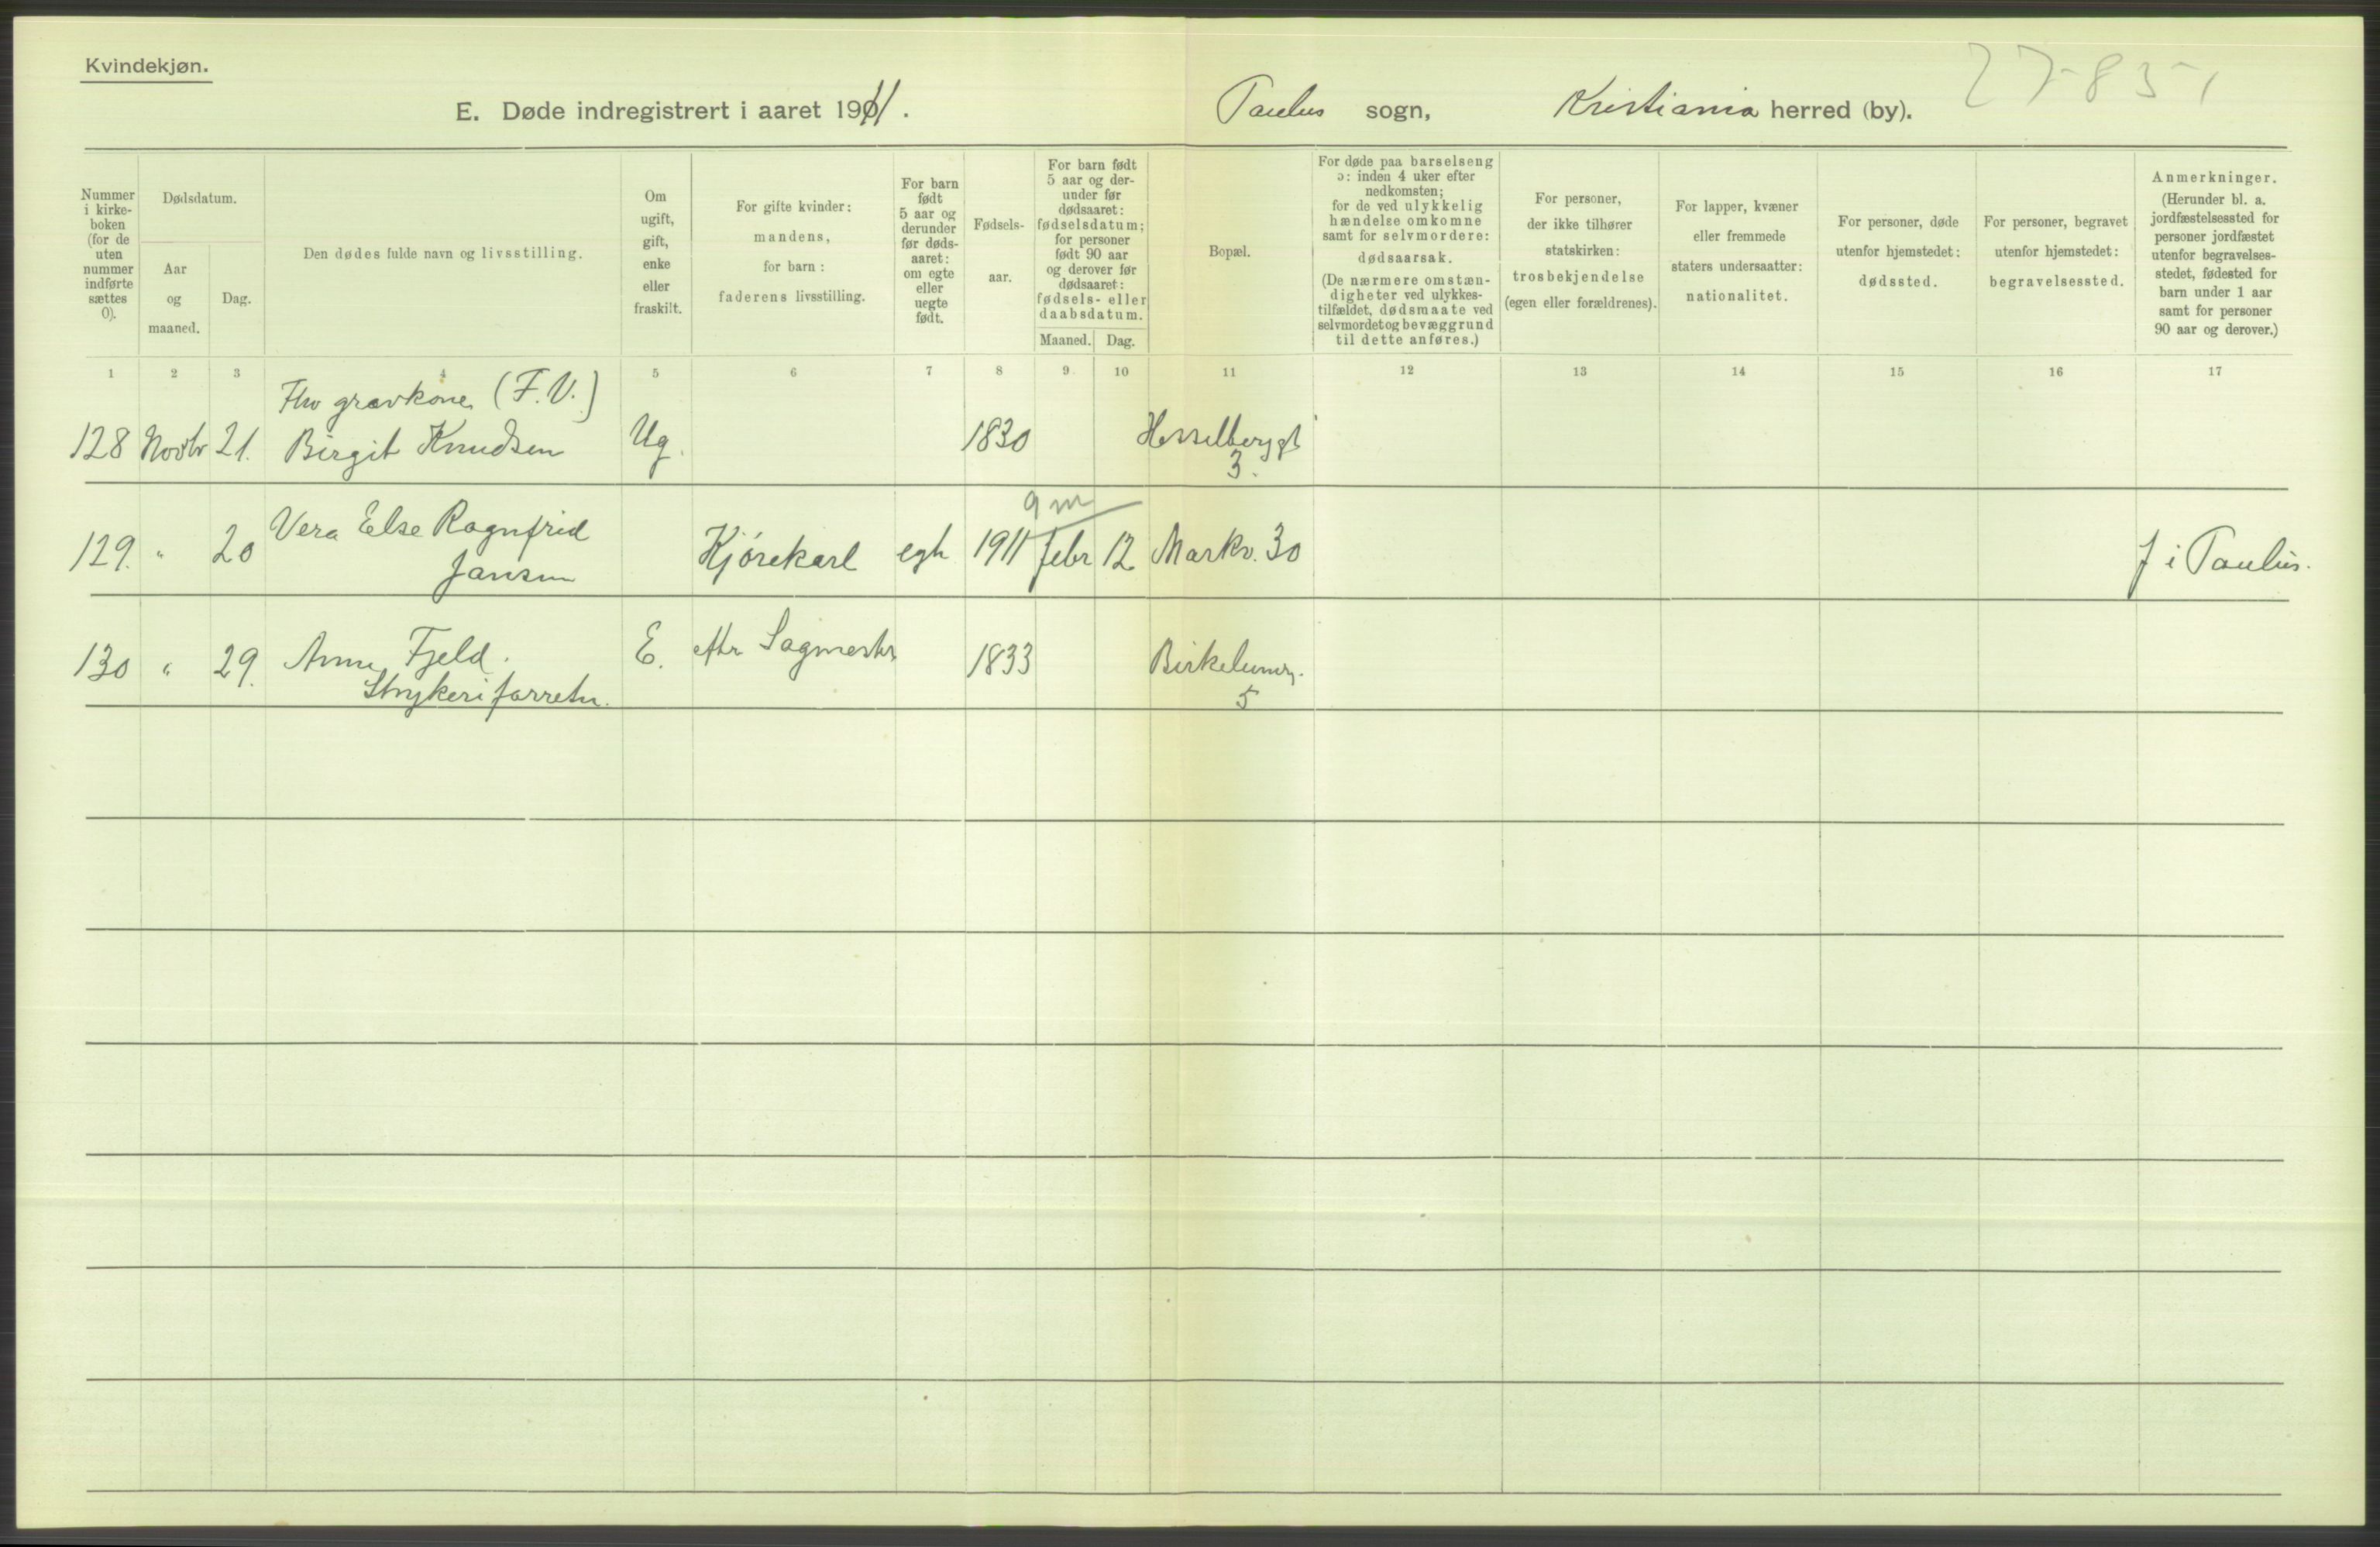 Kvindekjøn.
E. Døde indregistrert i aaret 1911. Paulus sogn, Kristiania herred (by). 27-85-1
Nummer i kirke-boken (for de uten nummer indførte sættes 0).
Dødsdatum.
Aar og maaned.
Dag.
Den dødes fulde navn og livsstilling.
Om ugift, gift, enke eller fraskilt.
For gifte kvinder: mandens, for barn: faderens livsstilling.
For barn født 5 aar og derunder før døds-aaret: om egte eller uegte født.
Fødsels-aar.
For barn født 5 aar og der-under før dødsaaret: fødselsdatum; for personer født 90 aar og derover før dødsaaret: fødsels- eller daabsdatum.
Maaned. Dag.
Bopæl.
For døde paa barselseng ɔ: inden 4 uker efter nedkomsten; for de ved ulykkelig hændelse omkomne samt for selvmordere: dødsaarsak. (De nærmere omstæn-digheter ved ulykkes-tilfældet, dødsmaate ved selvmordet og bevæggrund til dette anføres.)
For personer, der ikke tilhører statskirken: trosbekjendelse (egen eller forældrenes).
For lapper, kvæner eller fremmede staters undersaatter: nationalitet.
For personer, døde utenfor hjemstedet: dødssted.
For personer, begravet utenfor hjemstedet: begravelsessted.
Anmerkninger. (Herunder bl. a. jordfæstelsessted for personer jordfæstet utenfor begravelses-stedet, fødested for barn under 1 aar samt for personer 90 aar og derover.)
1 2 3 4 5 6 7 8 9 10 11 12 13 14 15 16 17
(F.V.)
128 Novbr 21. Birgit Knudsen Ug. 1830 Hesselberggt
3.
9 m
129. " 20 Vera Else Ragnfrid
Jansen Kjørekarl egte 1911 febr 12 Markv. 30 f i Paulus.
130 " 29. Anne Fjeld. E. efter Sagmester 1833 Birkelundg.
Strykeriforretn. 5